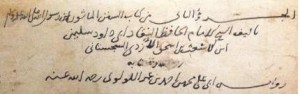 الجزء الثاني من كتاب السنن المأثورة عن رسول الله صلى الله
تأليف الشيخ الامام الحافظ النقاد ابي داود سليمن
ابن الاشعث بن اسحق الازدي السجستاني
رواية
ابي علي محمد بن احمد بن عمرو اللولوي رحمة الله عنه